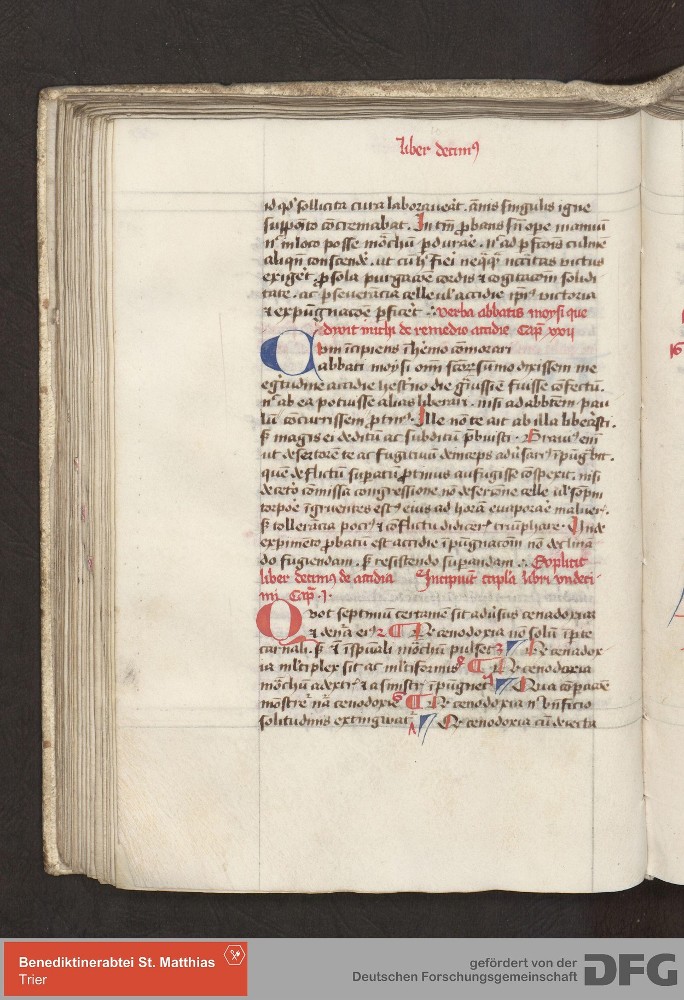 liber decimꝰ
id qd sollicita cura laborauerat. annis singulis igne
supposito concremabat. In tm̄ probans sine ope manuum
nec in loco posse mo͞chū perdurare. nec ad perfectōis culmē
aliqn̄ conscendere. ut cum hoc fieri neq̄q̄ necc̄itas victus
exigeret pro sola purgacōe cordis et cogitacōm solidi
tate. ac perseuerācia celle uel accidie ipius victoria
et expugnacōe perficeret verba abbatis moysi que
dixit michi de remedio accidie Cap̄ xxv
Cum īcipiens ī heremo cōmorari
abbati moysi omm̄ sc̄or͞ summo dixissem me
egritudine accidie hesterno die grauissie fuisse cōfectū.
nec ab ea potuisse alias liberari. nisi ad abbatem pau
lū concurrissem protinus. Ille non te ait ab illa liberasti.
sed magis ei deditū ac subditum prebuisti. Grauius enim
ut desertorē te ac fugitiuū deinceps aduersarius īpugnabit.
quē deflictū supatū protinus aufugisse cōspexit. nisi
de cetero cōmissa congressione non desercione celle uel sōpni
torpore
sed tollerācia pocius et cōflictu didiceris triumphare. Unde
experimento probatū est accidie īpugnacōm non declinā
do fugiendam. sed resistendo supandam. Explicit
liber decimꝰ de accidia Incipiunt capl̄a libri vndeci
mi Cap̄ .1.
Quot septimum certamē sit aduersus cenodoxia
Qr cenodoxia non solum ī parte
carnali. sed et ī spūali mo͞chum pulset 3 Qr cenodox
ia multiplex sit ac multiformis Qr cenodoxia
mo͞chum a dextris et a sinistris īpugnet Qua cōparacōe
mōstretur natura cenodoxie Qr cenodoxia n̄ bn̄ficio
solitudinis extinguatur Qr cenodoxia cū deiecta
16
Benediktinerabtei St. Matthias
Trier
gefördert von der
Deutschen Forschungsgemeinschaft DFG